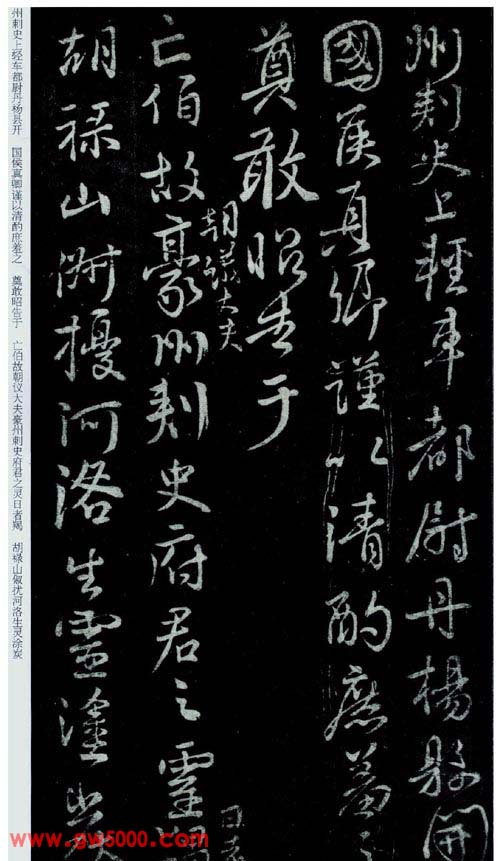 州刺史上輕車都尉丹楊縣開
國侯真卿謹以清酌庶羞之
奠敢昭告于
亡伯故豪州刺史府君之靈
朝議大夫
日者
胡祿山俶擾河洛生靈塗炭
州刺史上轻车都尉丹杨县开 国侯真卿谨以清酌庶羞之 奠敢昭告于 亡伯故朝议大夫豪州刺史府君之灵日者羯 胡禄山俶扰河洛生灵涂炭
www.gw5000.com